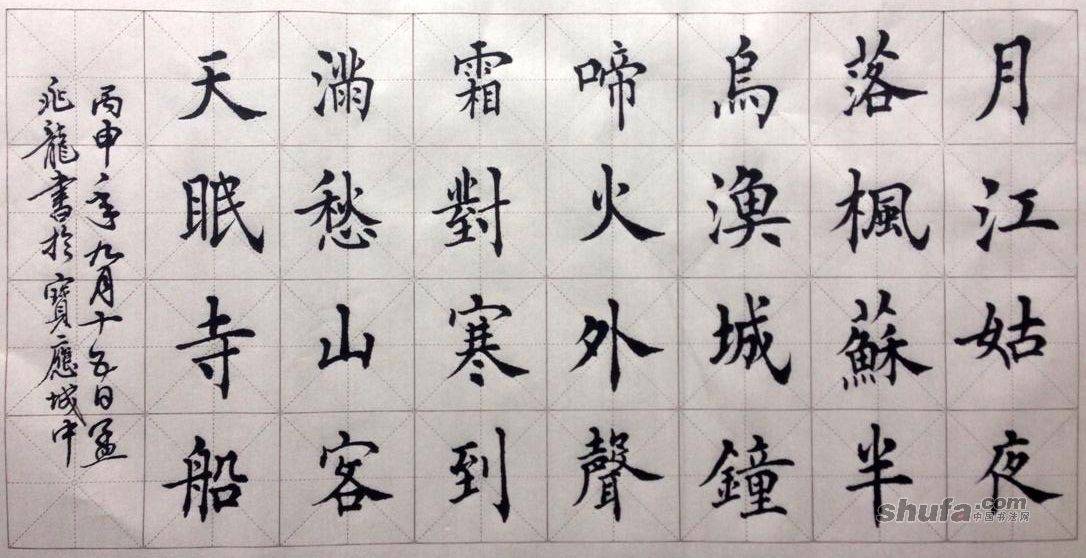 月落烏啼霜滿天
江楓漁火對愁眠
姑蘇城外寒山寺
夜半鐘聲到客船
丙申年九月十五日孟
兆龍書於寶應城中
shufa.com
中国书法网